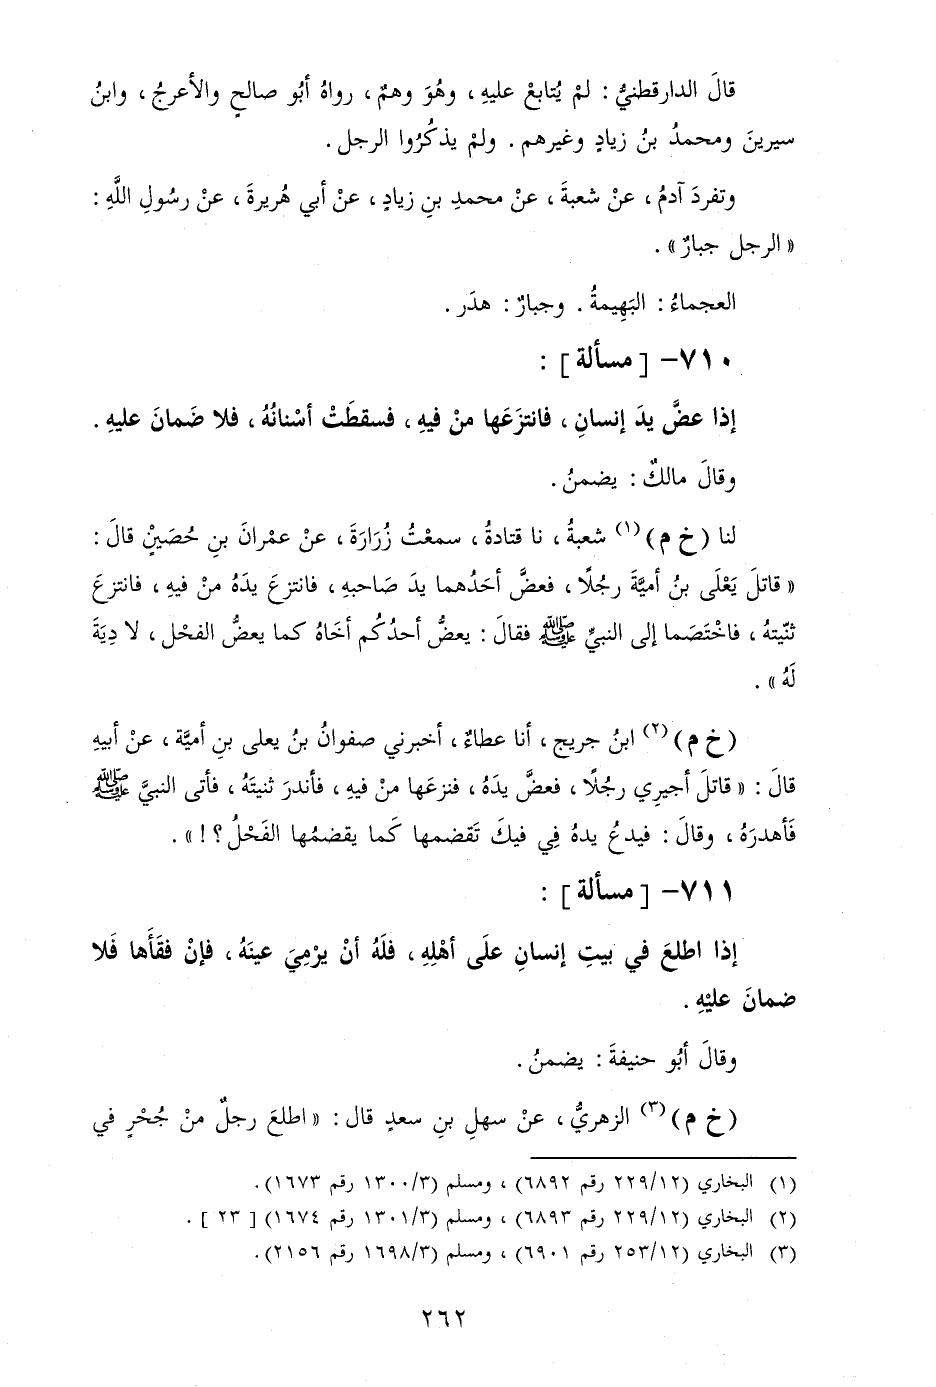 قالَ الدارقطنيُّ : لمْ يُتابعْ عليهِ ، وهُوَ وهمٌ ، رواهُ أبُو صالحٍ والأعرجُ ، وابنُ
سيرينَ ومحمدُ بنُ زيادٍ وغيرهم . ولمْ يذكُرُوا الرجل .
وتفردَ آدمُ ، عنْ شعبةَ ، عنْ محمدِ بنِ زيادٍ ، عنْ أبي هُريرةَ ، عنْ رسُولِ اللَّهِ :
« الرجل جبارٌ » .
العجماءُ : البَهِيمةُ . وجبارٌ : هدَر .
٧١٠- [ مسألة ] :
إذا عضَّ يدَ إنسانِ ، فانتزَعَها منْ فيهِ ، فسقطَتْ أسْنانُهُ ، فلا ضَمانَ عليهِ .
وقالَ مالكٌ : يضمنُ .
لنا (خ م)(١) شعبةُ ، نا قتادةُ ، سمعْتُ زُرَارَةَ ، عنْ عمْرانَ بنِ حُصَيْنٍ قالَ :
« قاتلَ يَعْلَى بنُ أميَّةَ رجُلًا ، فعضَّ أحَدُهما يدَ صَاحبهِ ، فانتزعَ يدَهُ منْ فيهِ ، فانتزعَ
ثنيّتهُ ، فاخْتَصَما إلى النبيِّ ﷺ فقالَ : يعضُّ أحدُكُم أخَاهُ كما يعضُّ الفحْل ، لا دِيَةَ
لَهُ » .
(خ م)(٢) ابنُ جريج ، أنا عطاءٌ ، أخبرني صفوانُ بنُ يعلى بنِ أميَّة ، عنْ أبيهِ
قالَ : « قاتلَ أجيرِي رجُلًا ، فعضَّ يدَهُ ، فنزعَها منْ فيهِ ، فأندرَ ثنيتَهُ ، فأتى النبيَّ ﷺ
فَأهدرَهُ ، وقالَ : فيدعُ يدهُ فِي فيكَ تَقضمها كَما يقضمُها الفَحْلُ ؟ ! » .
٧١١- [ مسألة ] :
إذا اطلعَ في بيتِ إنسانِ علَى أهْلِهِ ، فلَهُ أنْ يرْمِيَ عينَهُ ، فإنْ فقَأَها فَلا
ضمانَ عليْهِ .
وقالَ أبُو حنيفةَ : يضمنُ .
(خ م)(٣) الزهريُّ ، عنْ سهلِ بنِ سعدٍ قال : « اطلعَ رجلٌ منْ جُحْرٍ في
(١) البخاري (٢٢٩/١٢ رقم ٦٨٩٢) ، ومسلم (١٣٠٠/٣ رقم ١٦٧٣).
(٢) البخاري (٢٢٩/١٢ رقم ٦٨٩٣) ، ومسلم (١٣٠١/٣ رقم ١٦٧٤) [ ٢٣ ] .
(٣) البخاري (٢٥٣/١٢ رقم ٦٩٠١) ، ومسلم (١٦٩٨/٣ رقم ٢١٥٦).
٢٦٢